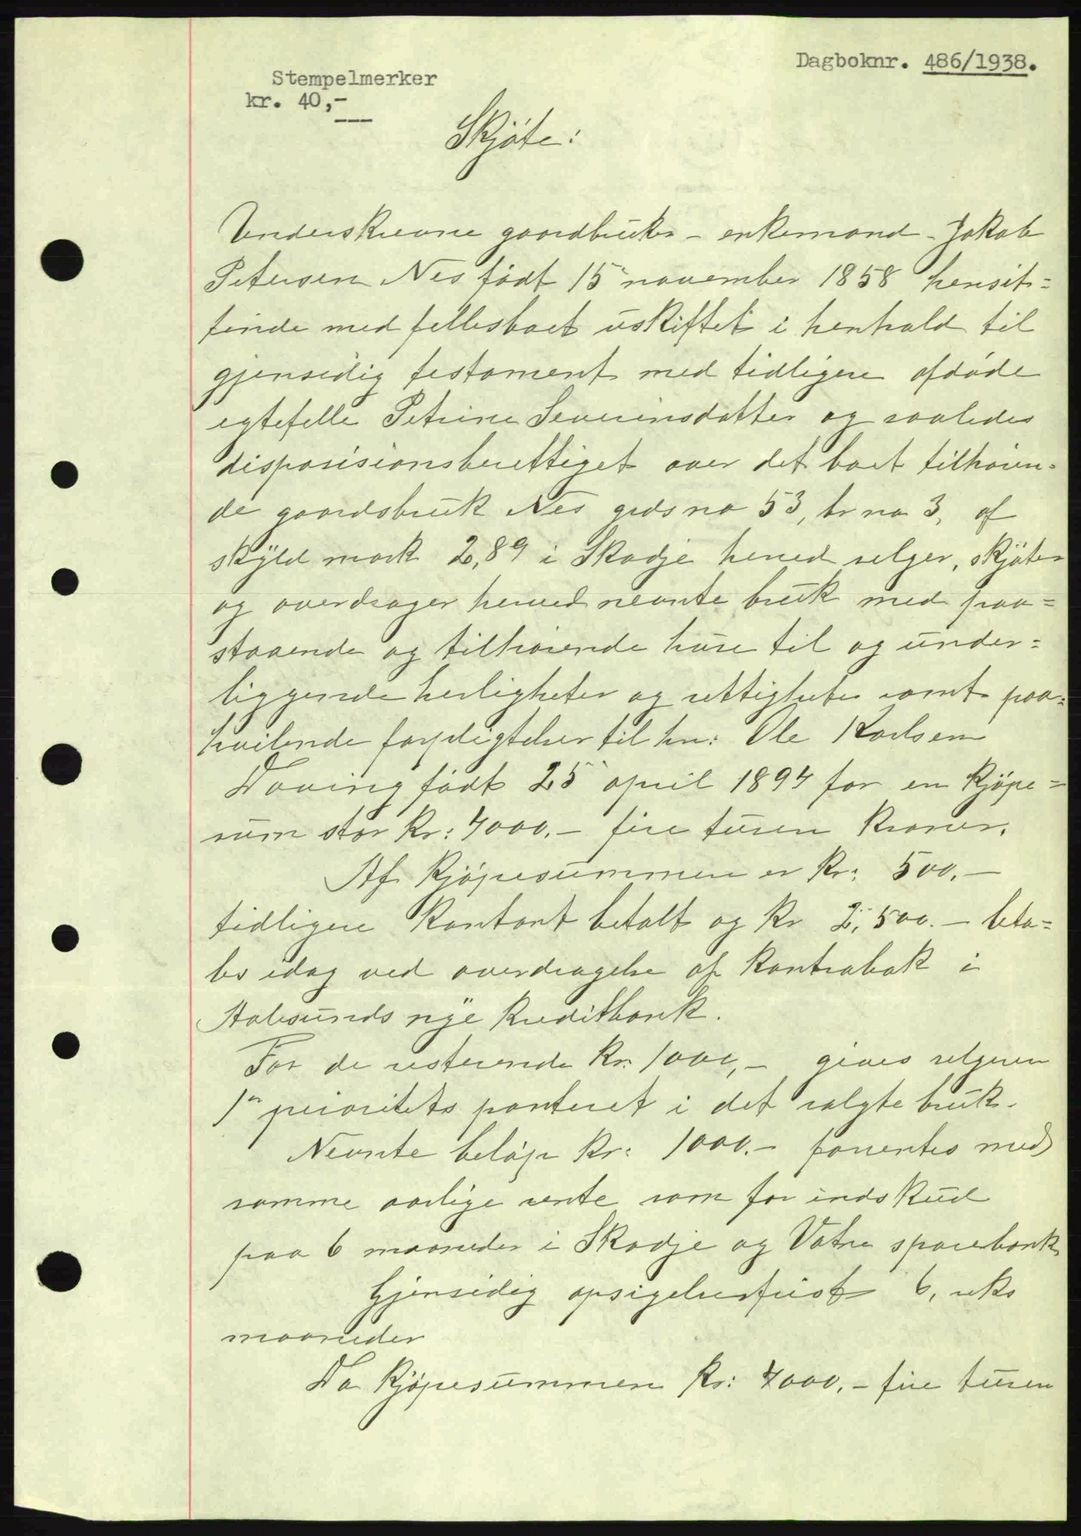 Dagboknr. 486/1938.
Stempelmerker
kr. 40,-
Skjøte:
Underskrevne gaardbruker - enkemand - Jakob
Petersen Nes født 15 november 1858 hensit-
tende med fellesboet uskiftet i henhold til
gjensidig testament med tidligere afdøde
egtefelle Petrine Severinsdatter og saaledes
disposisionsberettiget over det boet tilhøren-
de gaardsbruk Nes grds no 53, br no 3, af
skyld mark 2,89 i Skodje herred selger, skjøter
og overdrager herved nevnte bruk med paa-
staaende og tilhørende huse til og under-
liggende herligheter og rettigheter samt paa-
hvilende forpligtelser til hr: Ole Karlsen
Døving født 25 april 1894 for en kjøpe-
sum stor kr: 4000.- fire tusen kroner.
Af kjøpesummen er kr: 500.-
tidligere kontant betalt og kr 2,500.- beta-
les idag ved overdragelse af kontrabok i
Aalesunds nye kreditbank.
For de resterende kr: 1000,- gives selgeren
1ste prioritets panteret i det solgte bruk.
Nevnte beløp kr: 1000.- forrentes med
samme aarlige rente som for indskud
paa 6 maaneder i Skodje og Vatne sparebank
Gjensidig opsigelsesfrist 6, seks
maaneder
Da kjøpesummen kr: 4000.- fire tusen